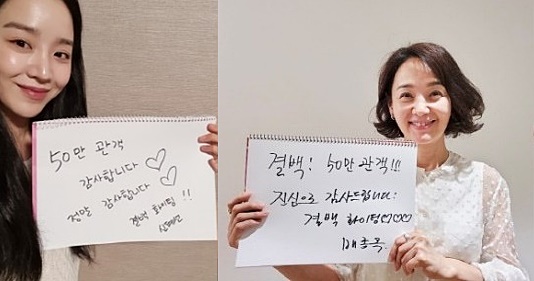 50만 관객
감사합니다 ♡
정말 감사합니다 ♡ !!
결백 화이팅
신혜선
결백! 50만 관객!!!
진심으로 감사드립니다:
결백 화이팅♡♡♡
배종옥